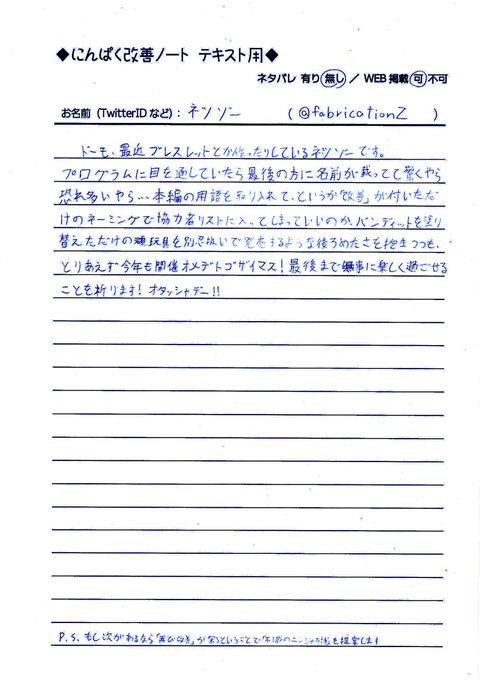 ◆にんぱく改善ノート テキスト用◆
ネタバレ 有り 無し ／ WEB掲載 可 不可
お名前（TwitterIDなど）： ネツゾー （@fabricationZ ）
ドーモ、最近ブレスレットとか作ったりしているネツゾーです。
プログラムに目を通していたら最後の方に名前が載ってて驚くやら
恐れ多いやら…本編の用語を取り入れて、というか「改善」が付いただ
けのネーミングで協力者リストに入ってしまっていいのか、バンディットを塗り
替えただけの玩具を別忍扱いで発売するような後ろめたさを抱きつつも、
とりあえず今年も開催オメデトゴザイマス！最後まで無事に楽しく過ごせる
ことを祈ります！オタッシャデー!!
P.S. もし次があるなら「再び改善」が宿るということで を提案します